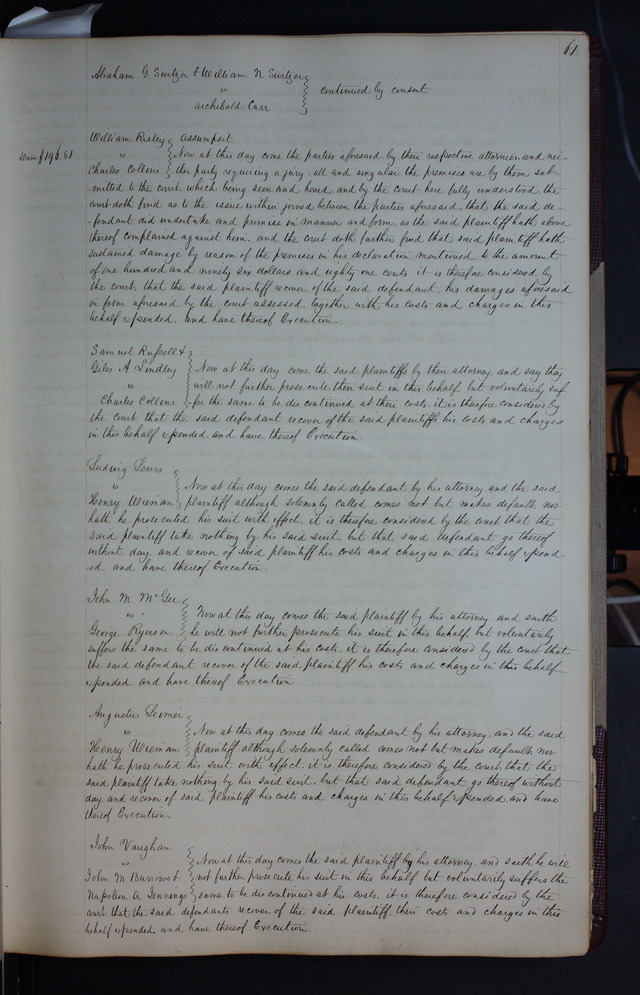 61
Abraham G Switzer & William N Switzer
vs
Archibald Carr
continued by consent
William Risley
vs
Charles Collins
assumpsit
Dam $196.81
Now at this day come the parties aforesaid by their respective attornies and nei-
ther party requiring a jury. all and singular the premises are by them sub-
mitted to the court which being seen and heard and by the court here fully understood the
court doth find as to the issue within joined between the parties aforesaid that the said de-
fendant did undertake and promise in manner and form as the said plaintiff hath above
thereof complained against him. and the court doth further find that said plaintiff hath
sustained damage by reason of the premises in his declaration mentioned to the amount
of one hundred and ninety six dollars and eighty one cents it is therefore considered by
the court, that the said plaintiff recover of the said defendant, his damages aforesaid
in form aforesaid by the court assessed together with his costs and charges in this
behalf expended. and have thereof Execution.
Samuel Russell &
Giles A Lindley
vs
Charles Collins
Now at this day come the said plaintiffs by their attorney and say they
will not further prosecute their suit in this behalf but voluntarily suf-
fer the same to be discontinued at their costs. it is therefore considered by
the court that the said defendant recover of the said plaintiffs his costs and charges
in this behalf expended and have thereof Execution.
Ludwig Lewis
vs
Henry
Now at this day comes the said defendant by his attorney and the said
plaintiff although solemnly called comes not but makes default nor
hath he prosecuted his suit with effect. it is therefore considered by the court that the
said plaintiff take nothing by his said suit. but that said defendant go thereof
without day and recover of said plaintiff his costs and charges in this behalf expend-
ed and have thereof Execution.
John M. McGee
vs
George Ryerson
Now at this day comes the said plaintiff by his attorney and saith
he will not further prosecute his suit in this behalf but voluntarily
suffers the same to be discontinued at his costs. it is therefore considered by the court that
the said defendant recover of the said plaintiff his costs and charges in this behalf
expended and have thereof Execution
Augustus
vs
Henry
Now at this day comes the said defendant by his attorney. and the said
plaintiff although solemnly called comes not but makes default, nor
hath he prosecuted his suit with effect. it is therefore considered by the court, that the
said plaintiff take nothing by his said suit. but that said defendant go thereof without
day and recover of said plaintiff his costs and charges in this behalf expended and have
thereof Execution.
John Vaughan
vs
John M Burrows &
Napoleon A Jennings
Now at this day comes the said plaintiff by his attorney and saith he will
not further prosecute his suit in this behalf but voluntarily suffers the
same to be discontinued at his costs. it is therefore considered by the
court. that the said defendants recover of the said plaintiff. their costs and charges in this
behalf expended, and have thereof Execution.